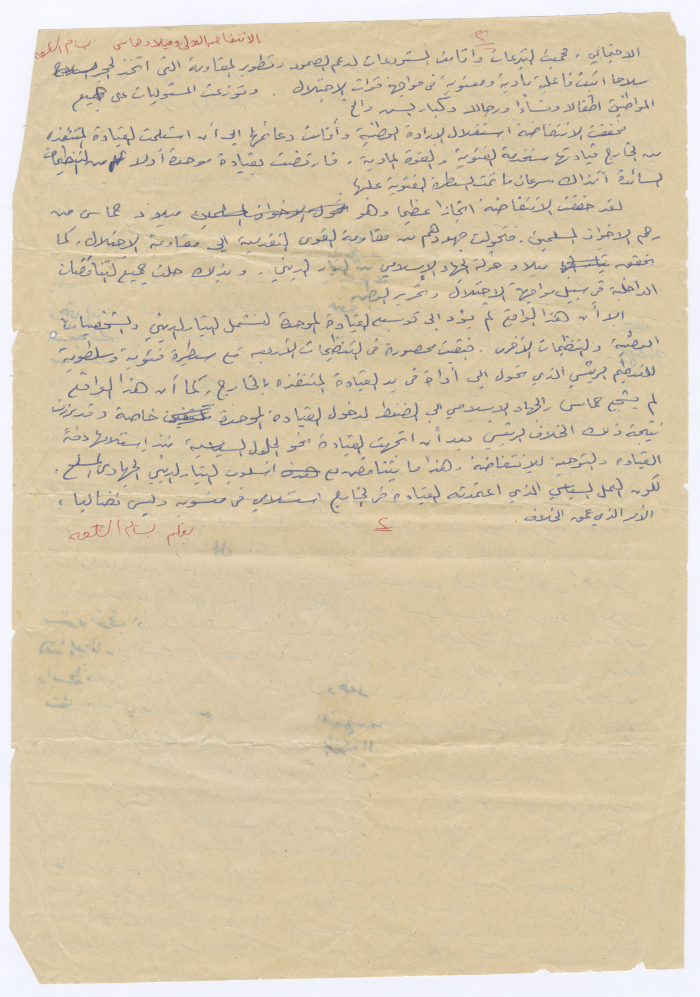 الانتفاضة الاولى وميلاد حماس بسام الكعبي
٣
الاجتماعي ، فجمعت التبرعات وأقامت المستودعات لدعم الصمود وتطور المقاومة التي اتخذ الحجر
سلاحا اثبت فاعلية مادية ومعنوية في مواجهة قوات الاحتلال . وتوزعت المسئوليات على جميع
المواطنين اطفالا ونساءا ورجالا وكبار السن
فحققت الانتفاضة استقلال الارادة الوطنية وأقامت دعائمها الى أن استلمت القيادة المتنفذه
من الخارج قيادتها مستخدمة الفئوية والقوة المادية . فارتضت بقيادة موحدة أولا من التنظيمات
السائدة آنذاك سرعان ما تمت السيطرة الفئوية عليها
لقد حققت الانتفاضة انجازا عظيما وهو تحول الاخوان المسلمين ميلاد حماس من
رحم الاخوان المسلمين ، فتحولت جهودهم من مقاومة القوى التقدمية الى مقاومة الاحتلال ، كما
تحقق ميلاد حركة الجهاد الإسلامي من التيار الديني . وبذلك حلت جميع التناقضات
الداخلية في سبيل مواجهة الاحتلال وتحرير الوطن
الا أن هذا الواقع لم يؤد الى توسيع القيادة الموحدة لتشمل التيار الديني والشخصيات
الوطنية والتنظيمات الأخرى . فبقيت محصورة في التنظيمات الأربعة مع سيطرة فئوية وسلطوية
للتنظيم الرئيسي الذي تحول الى أداة في يد القيادة المتنفذه بالخارج ، كما أن هذا الواقع
لم يشجع حماس والجهاد الاسلامي الى الضغط لدخول القيادة الموحدة خاصة وقد برزت
نتيجة ذلك الخلاف الرئيسي بعد أن اتجهت القيادة نحو الحلول السلمية منذ استلامها دفة
القيادة والتوجيه للانتفاضة وهذا ما يتناقض مع اسلوب التيار الديني الجهادي المسلح ،
لكون العمل السياسي الذي اعتمدته القيادة في الخارج استسلامي في مضمونه وليس نضاليا ،
الأمر الذي عمق الخلاف .
٢ بقلم بسام الكعبي